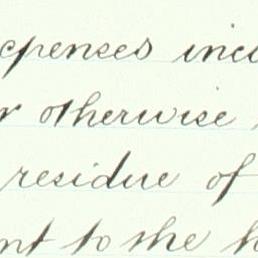 expenses inc
or otherwise
residue of
nt to the h